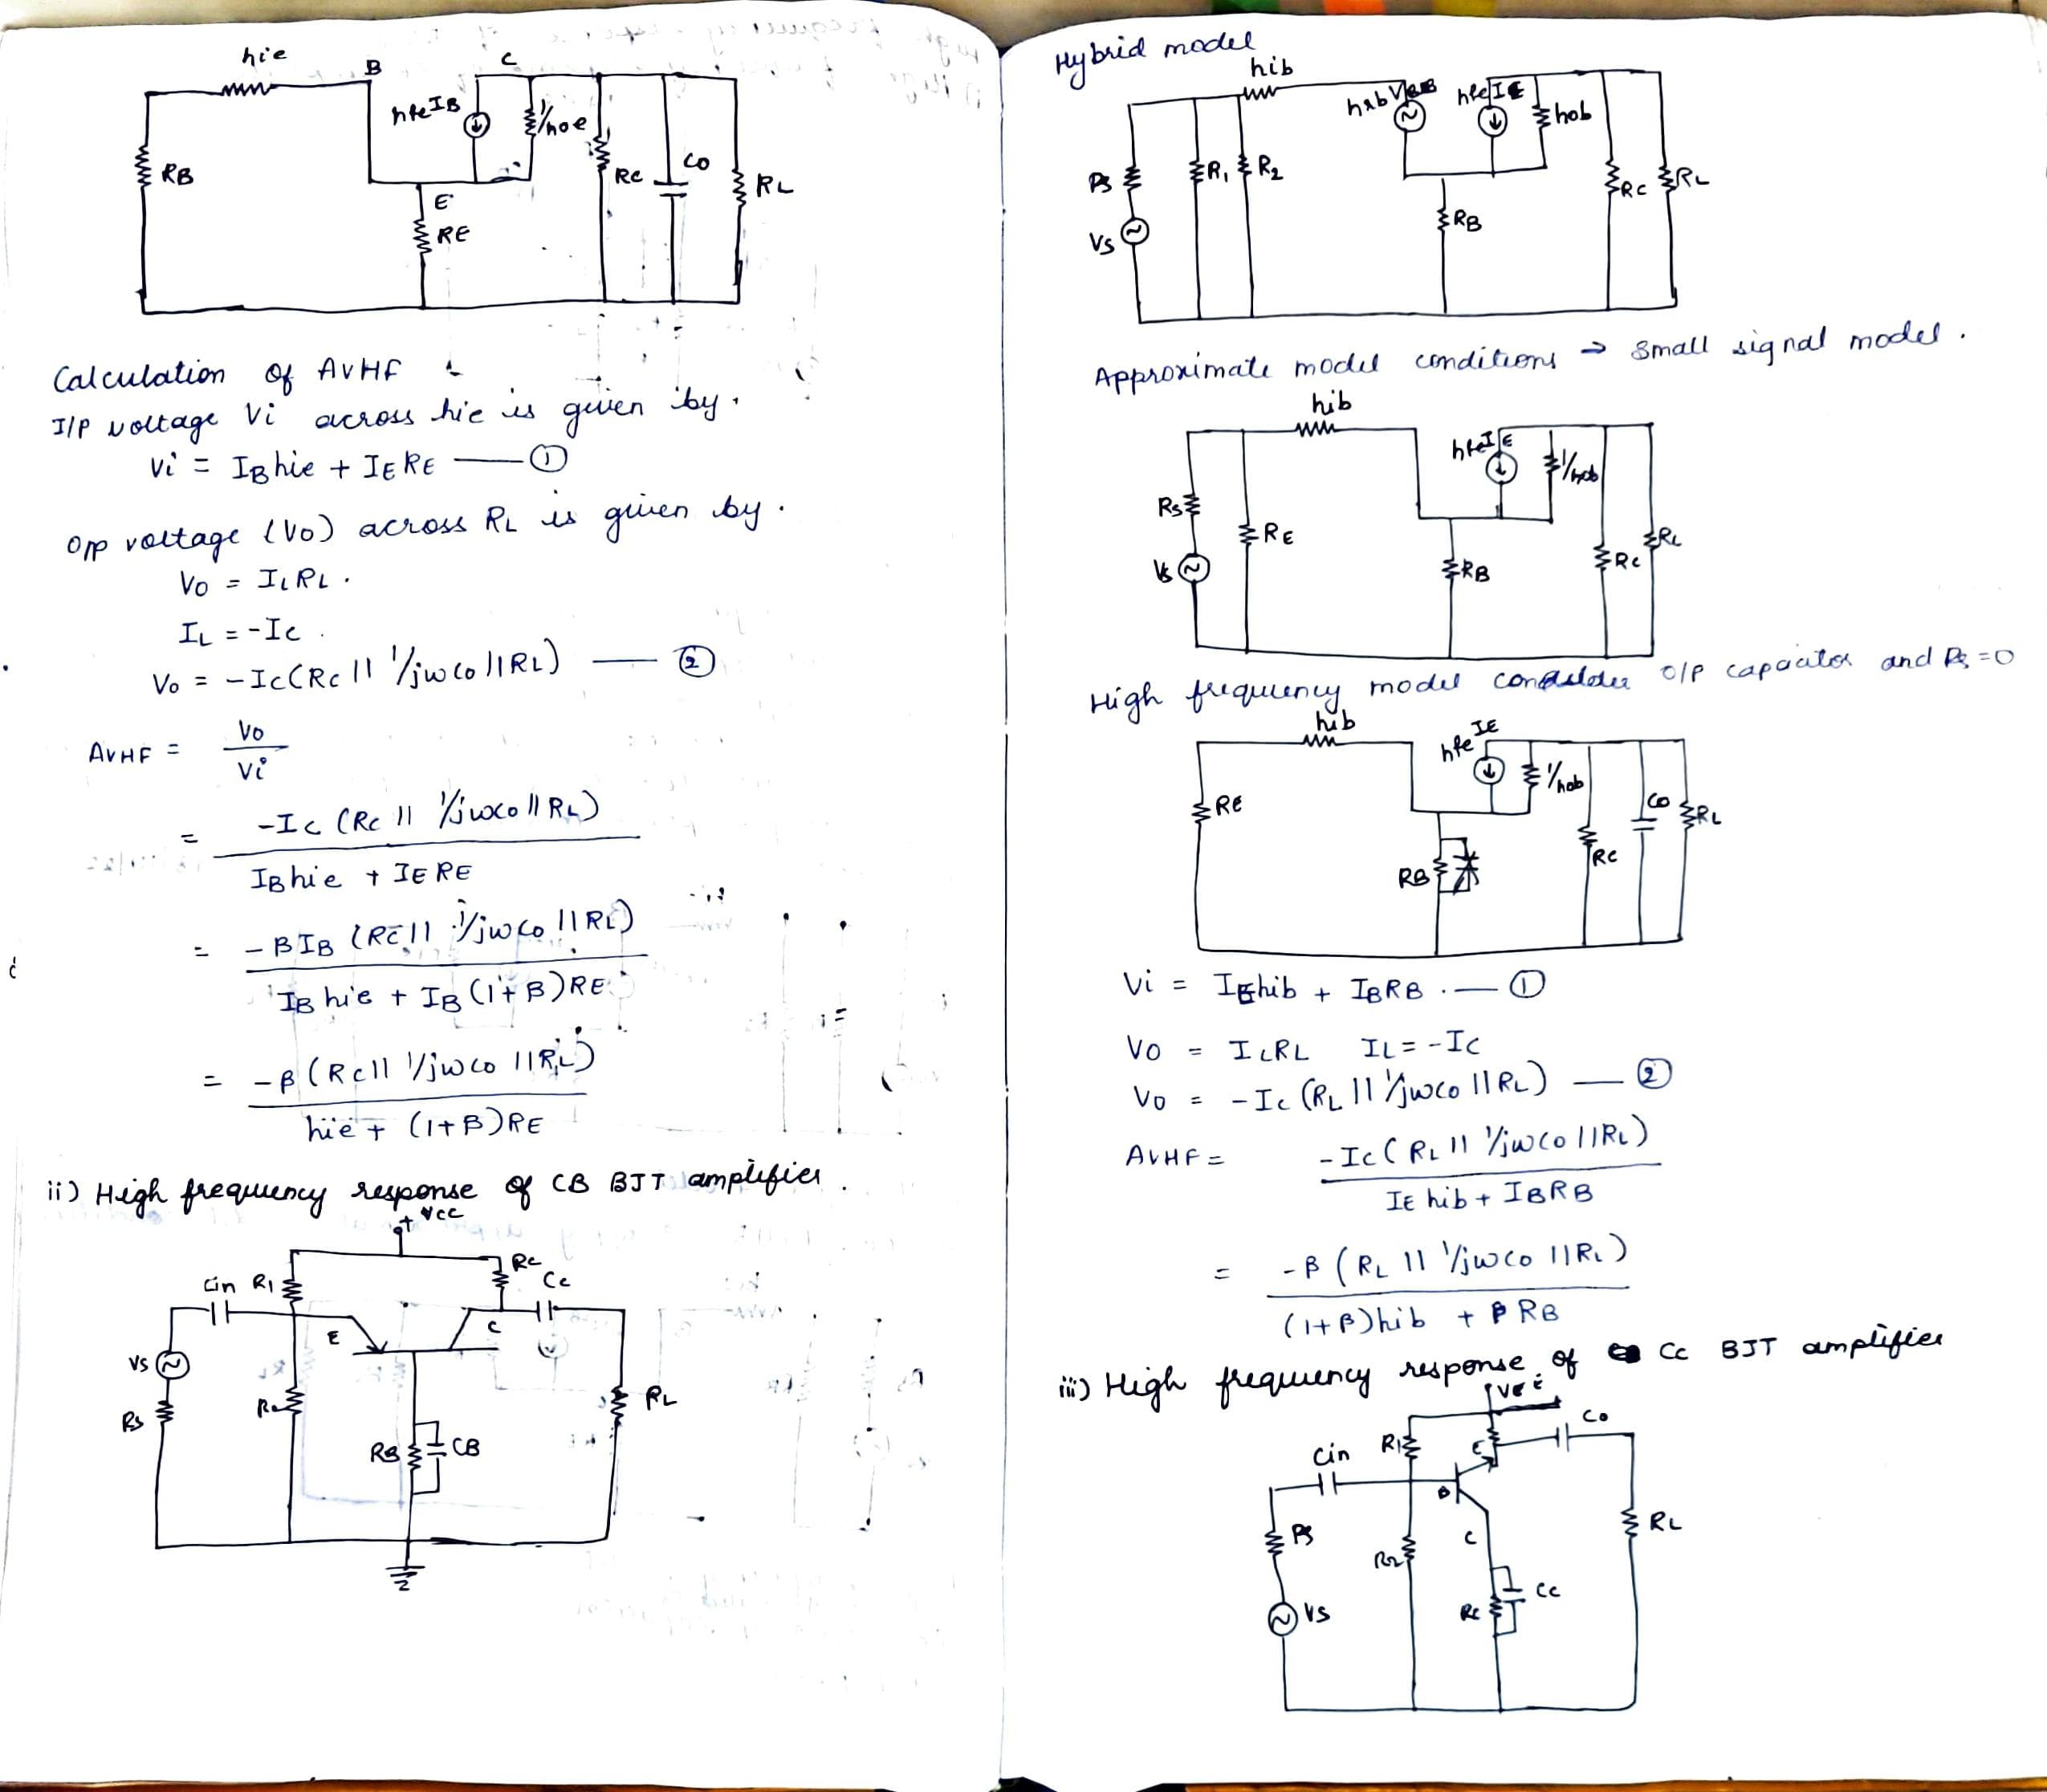 hie
B
C
hfeIB
1/hoe
RB
RC
CO
RL
E
RE
Calculation of AVHF
I/P voltage Vi across hie is given by.
Vi = IBhie + IERE — ①
O/p voltage (Vo) across RL is given by.
VO = ILRL.
IL = -IC.
Vo = -IC(RC || 1/jωco || RL) — ②
AVHF = Vo/Vi
= -IC (RC || 1/jωco || RL) / IBhie + IERE
= -βIB (RC || 1/jωco || RL) / IB hie + IB (1+β)RE
= -β (RC || 1/jωco || RL) / hie + (1+β)RE
ii) High frequency response of CB BJT amplifier.
+ VCC
RC
Cin R1
CC
E
C
VS
RS
RL
RB
CB
Hybrid model
hib
hrbVBB
hfeIE
hob
RS
R1
R2
RC
RL
VS
RB
Approximate model conditions → small signal model.
hib
hfeIE
1/hob
RS
RE
RL
VS
RB
RC
High frequency model considder o/p capacitor and RS=0
hib
hfe IE
1/hob
RE
CO
RL
RC
RB
Vi = IEhib + IBRB. — ①
VO = ILRL IL = -IC
VO = -IC (RL || 1/jωco || RL) — ②
AVHF = -IC (RL || 1/jωco || RL) / IE hib + IBRB
= -β (RL || 1/jωco || RL) / (1+β)hib + β RB
iii) High frequency response of CC BJT amplifier
Co
Cin
R1
E
B
RS
RL
R2
C
CC
VS
RC